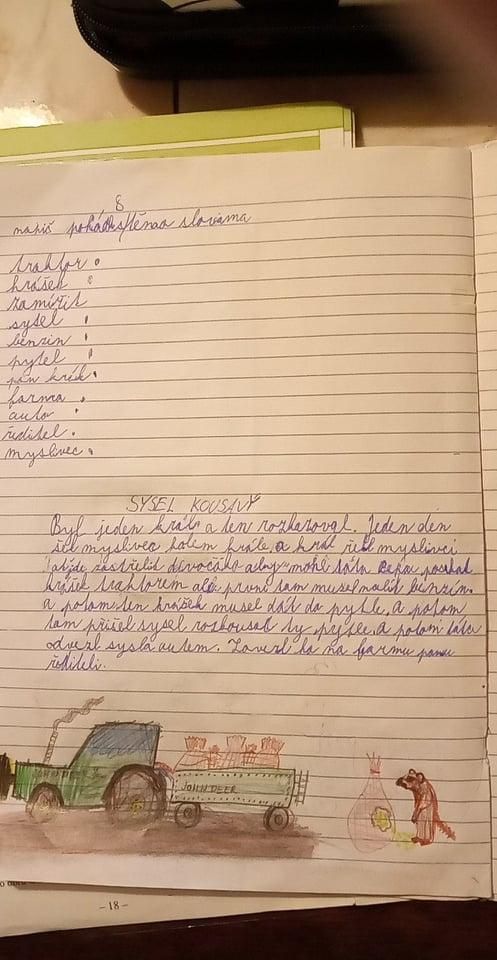 8
napiš pohádku těmao slovama
traktor
hrášek
zamířit
sysel
benzin
pytel
pan král
farma
auto
ředitel.
myslivec
SYSEL KOUSAVÝ
Byl jeden král a ten rozkazoval. Jeden den
šel myslivec kolem krále, a král řekl myslivci
zastřelit divočáka aby mohl táta
hrášek traktorem ale první tam musel nalít benzín.
a potom ten hrášek musel dát do pytle. a potom
tam přišel sysel rozkousal ty pytle. a potom táta
odvezl sysla autem. Zavezl ho na farmu panu
řediteli.
JOHN DEER
JOHN DEER
- 18 -